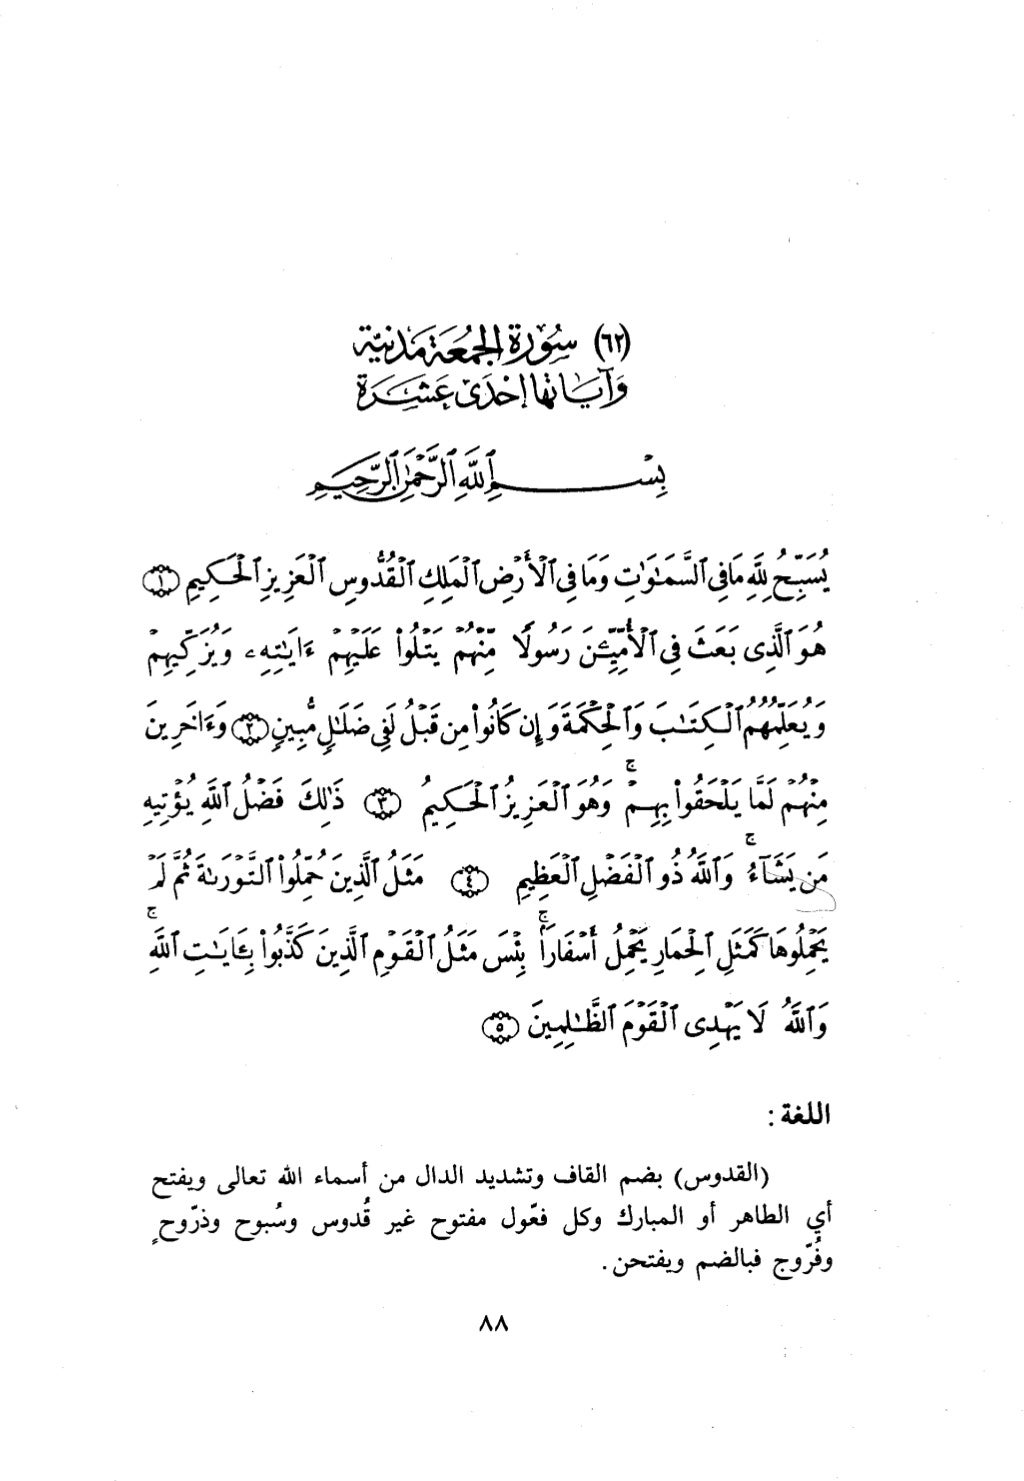 (٦٢) سُورَةُ الجُمُعَة مَدَنيَّة
وَآيَاتهَا إِحْدَى عَشْرَة
بِسْمِ ٱللَّهِ ٱلرَّحْمَٰنِ ٱلرَّحِيمِ
يُسَبِّحُ لِلَّهِ مَا فِى ٱلسَّمَٰوَٰتِ وَمَا فِى ٱلْأَرْضِ ٱلْمَلِكِ ٱلْقُدُّوسِ ٱلْعَزِيزِ ٱلْحَكِيمِ ۝١
هُوَ ٱلَّذِى بَعَثَ فِى ٱلْأُمِّيِّـۧنَ رَسُولًا مِّنْهُمْ يَتْلُوا۟ عَلَيْهِمْ ءَايَٰتِهِۦ وَيُزَكِّيهِمْ
وَيُعَلِّمُهُمُ ٱلْكِتَٰبَ وَٱلْحِكْمَةَ وَإِن كَانُوا۟ مِن قَبْلُ لَفِى ضَلَٰلٍ مُّبِينٍ ۝٢ وَءَاخَرِينَ
مِنْهُمْ لَمَّا يَلْحَقُوا۟ بِهِمْ ۚ وَهُوَ ٱلْعَزِيزُ ٱلْحَكِيمُ ۝٣ ذَٰلِكَ فَضْلُ ٱللَّهِ يُؤْتِيهِ
مَن يَشَآءُ ۚ وَٱللَّهُ ذُو ٱلْفَضْلِ ٱلْعَظِيمِ ۝٤ مَثَلُ ٱلَّذِينَ حُمِّلُوا۟ ٱلتَّوْرَىٰةَ ثُمَّ لَمْ
يَحْمِلُوهَا كَمَثَلِ ٱلْحِمَارِ يَحْمِلُ أَسْفَارًا ۚ بِئْسَ مَثَلُ ٱلْقَوْمِ ٱلَّذِينَ كَذَّبُوا۟ بِـَٔايَٰتِ ٱللَّهِ ۚ
وَٱللَّهُ لَا يَهْدِى ٱلْقَوْمَ ٱلظَّٰلِمِينَ ۝٥
اللغة :
(القدوس) بضم القاف وتشديد الدال من أسماء الله تعالى ويفتح
أي الطاهر أو المبارك وكل فعّول مفتوح غير قُدوس وسُبوح وذرّوحٍ
وفُرّوج فبالضم ويفتحن .
٨٨